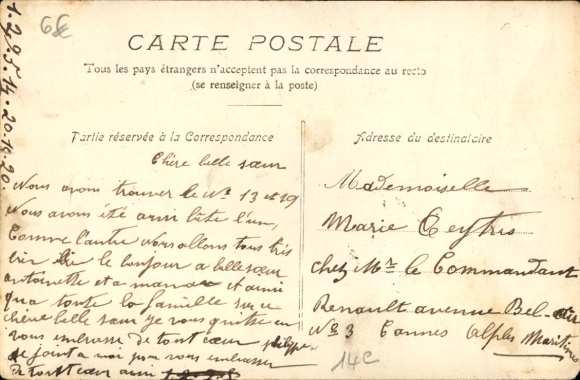 6€
1.2.9.5.14.20.19.20.
CARTE POSTALE
Tous les pays étrangers n'acceptent pas la correspondance au recto
(se renseigner à la poste)
Partie réservée à la Correspondance
Adresse du destinataire
Chère belle sœur
Nous avons trouver le No 13 et 19
Nous avons été ausi bête l'un,
Comme l'autre Nous allons tous très
bien le bonjour a belle sœur
antoinette et a et ainsi
qua toute la famille sur ce
chère belle sœur je vous quitte en
vous embrasse de tout cœur philippe
se joint a moi pour vous embrasser
de tout cœur ausi
Mademoiselle
Marie Ceytres
chez Mr le Commandant
Renault avenue Bel-air
No 3 Cannes Alples Maritimes
14C